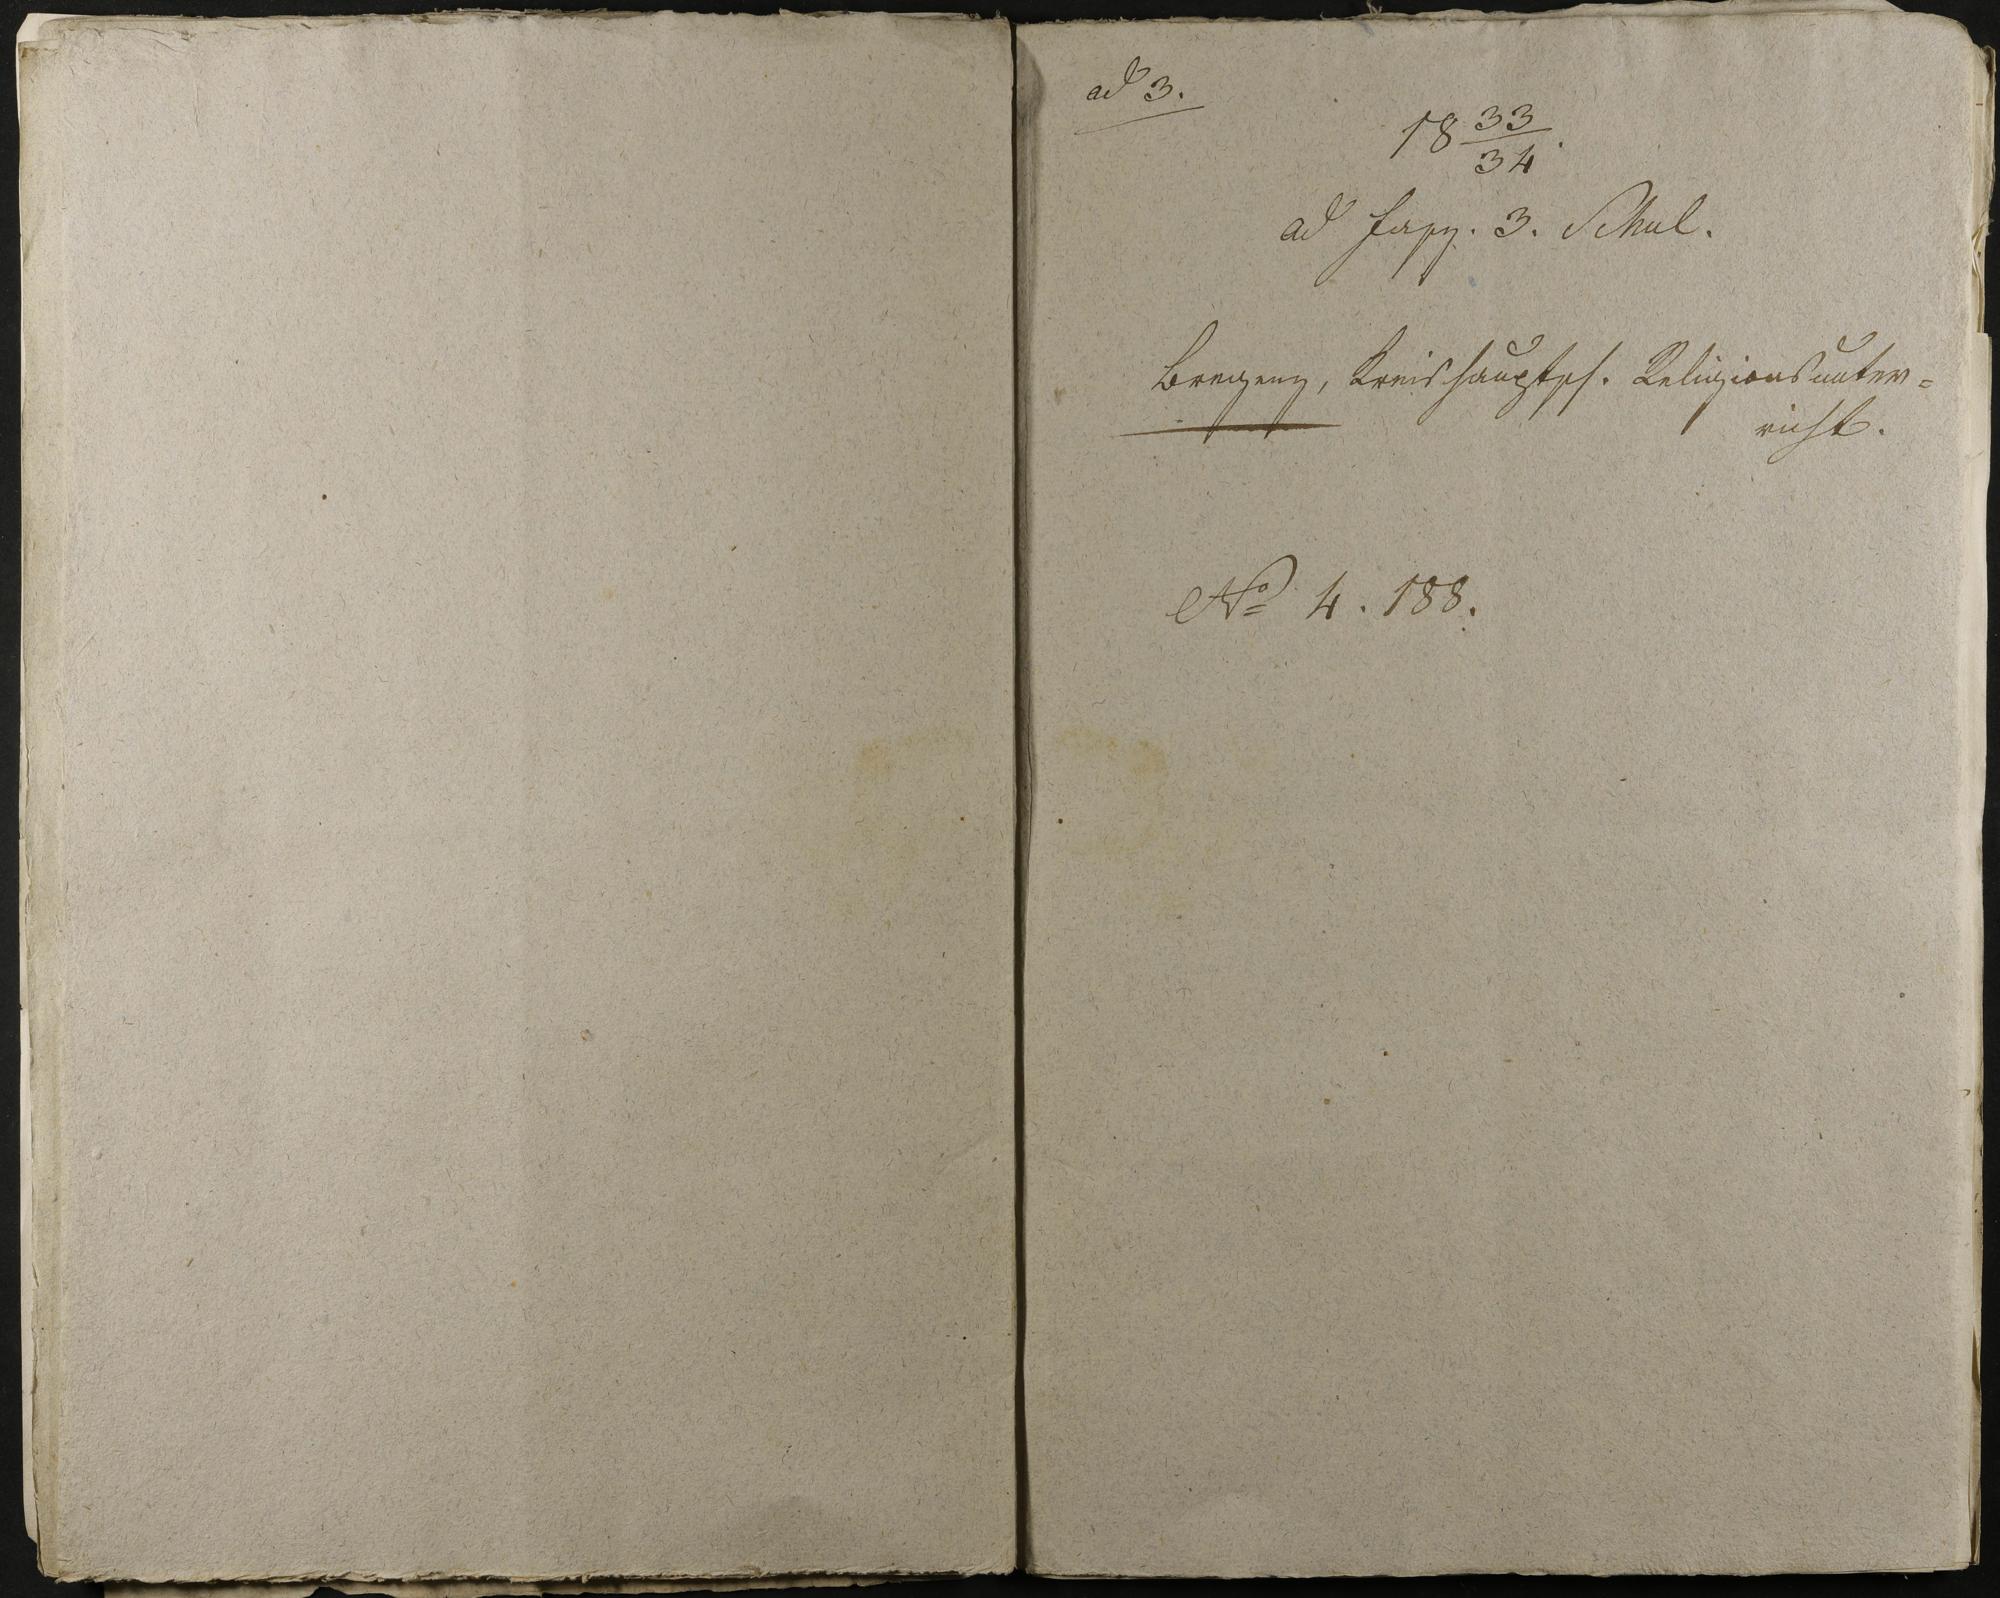 ad 3.
18 33/34.
ad fasz. 3. Schul.
Bregenz, Kreishauptsch. Religionsunter=
richt.
No 4. 188.